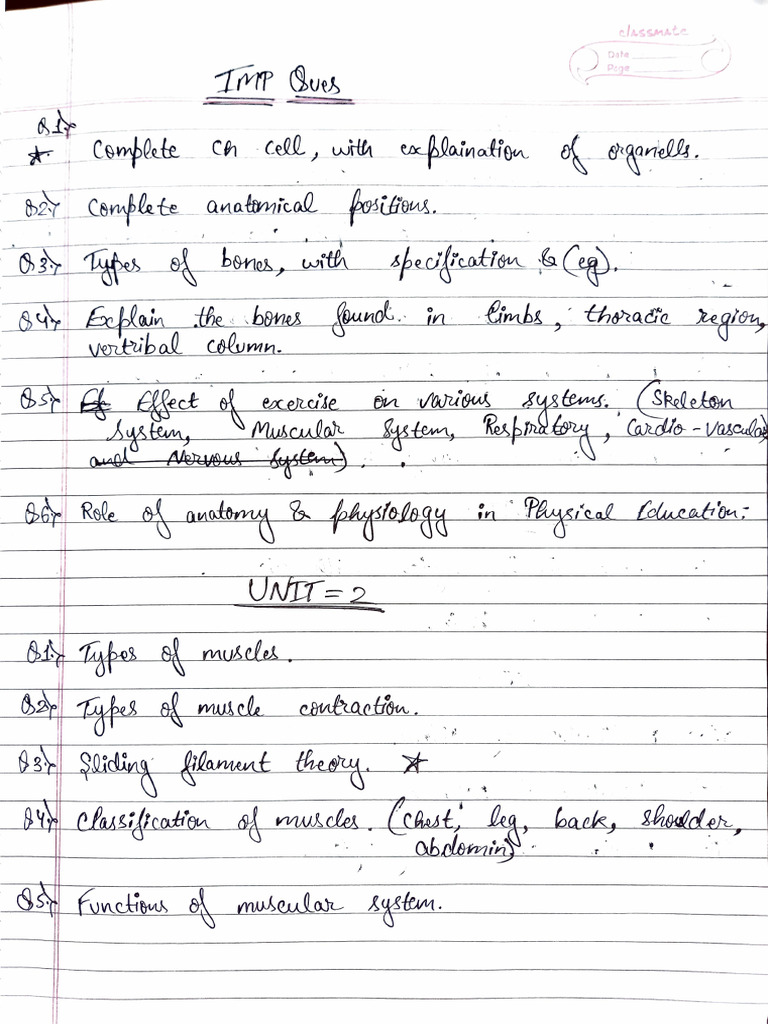 classmate
Date
Page
IMP Ques
Q1)
* Complete Ch cell, with explaination of organells.
Q2) Complete anatomical positions.
Q3) Types of bones, with specification & (eg).
Q4) Explain the bones found in limbs, thoracic region,
vertribal column.
Q5) Ef Effect of exercise on various systems. (Skeleton
System, Muscular system, Respiratory, Cardio-vascular)
and Nervous System).
Q6) Role of anatomy & physiology in Physical Education:-
UNIT = 2
Q1) Types of muscles.
Q2) Types of muscle contraction.
Q3) Sliding filament theory. *
Q4) Classification of muscles. (Chest, leg, back, shoulder,
abdomin)
Q5) Functions of muscular system.